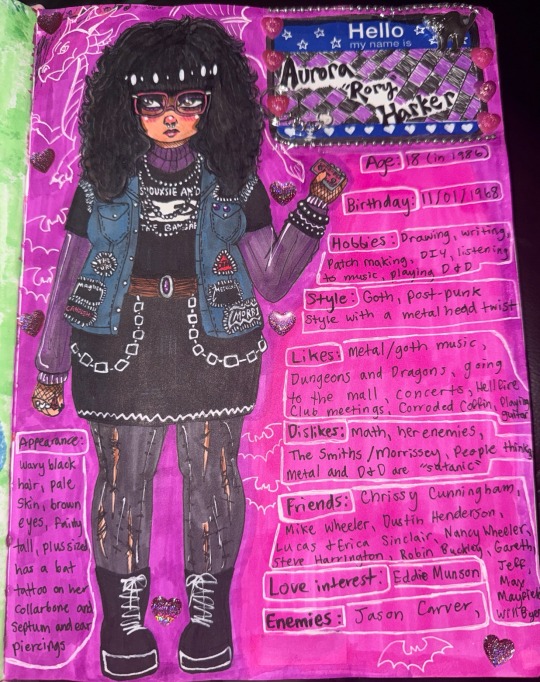 Hello
my name is
Aurora
"Rory"
Harker
Age: 18 (in 1986)
Birthday: 11/01/1968
Hobbies: Drawing, writing,
Patch making, DIY, listening
to music, playing D&D
Style: Goth, post-punk
style with a metal head twist
Likes: Metal/goth music,
Dungeons and Dragons, going
to the mall, concerts, Hellfire
Club meetings, Corroded Coffin, Playing
guitar
Dislikes: Math, her enemies,
The Smiths/Morrissey, People thinking
Metal and D&D are "satanic"
Friends: Chrissy Cunningham,
Mike Wheeler, Dustin Henderson,
Lucas + Erica Sinclair, Nancy Wheeler,
Steve Harrington, Robin Buckley, Gareth,
Jeff,
Max
Mayfield
Will Byers
Love interest: Eddie Munson
Enemies: Jason Carver,
Appearance:
wavy black
hair, pale
Skin, brown
eyes, Fairly
tall, plus sized
has a bat
tattoo on her
collarbone and
Septum and ear
piercings
SIOUXSIE AND
THE BANSHEES